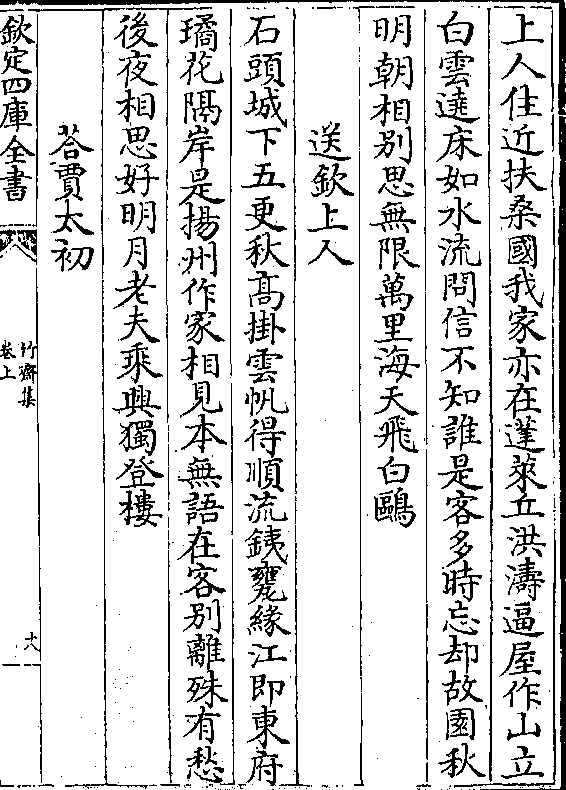 上人住近扶桑國我家亦在蓬萊丘洪濤逼屋作山立
白雲遶床如水流問信不知誰是客多時忘却故園秋
明朝相别思無限萬里海天飛白鷗
送欽上人
石頭城下五更秋髙掛雲帆得順流鐵甕緣江即東府
璚花隔岸是揚州作家相見本無語在客别離殊有愁
後夜相思好明月老夫乘興獨登樓
荅賈太初
欽定四庫全書
竹齋集
卷上
十八